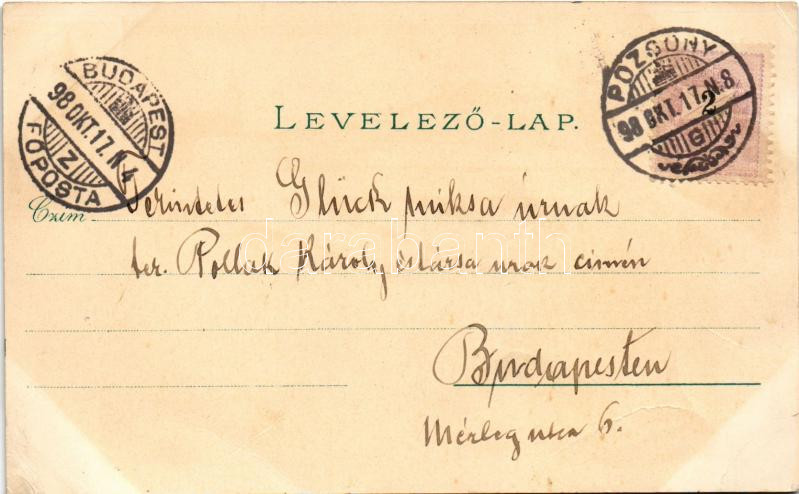 LEVELEZŐ-LAP.
BUDAPEST
98 OKT. 17. N 4
Z
FŐPOSTA
POZSONY
98 OKT. 17. N. 8
G
2
Czim
Tekintetes Glück Miksa úrnak
ter. Pollak Károly és társa urak czimén
Budapesten
Mérleg utca 6.
darabanth